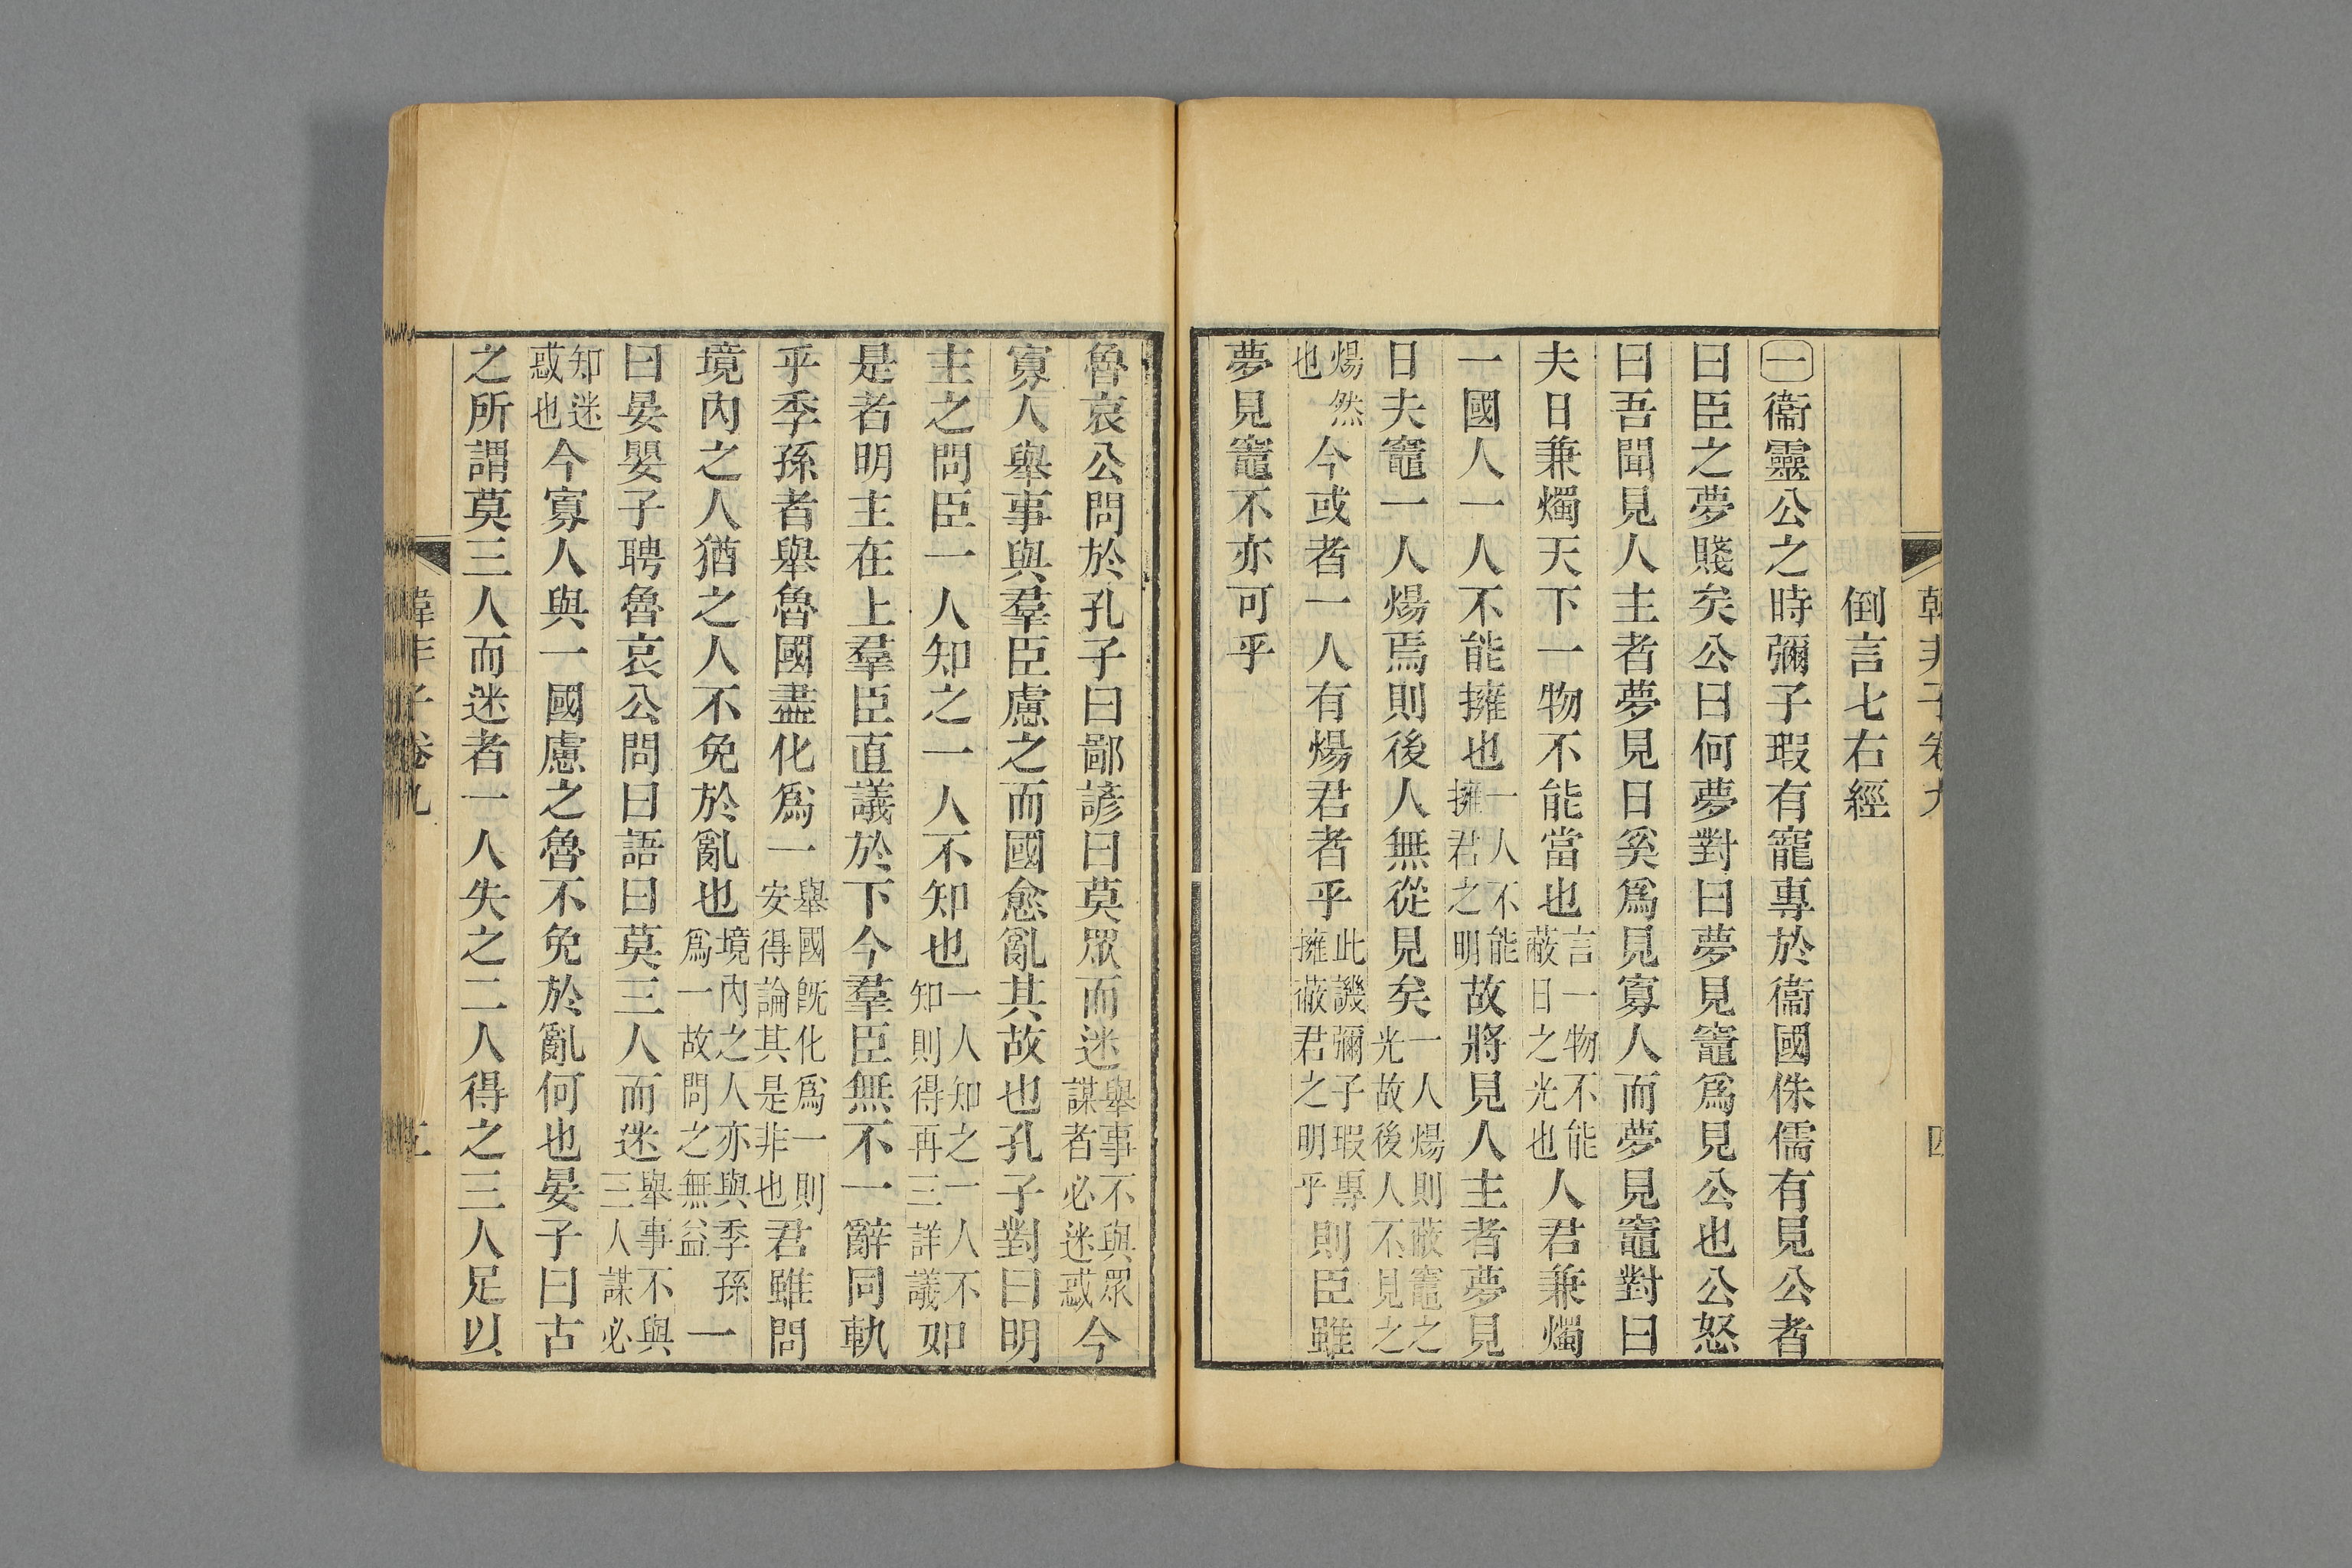 韓非子卷九
四
倒言七右經
一衞靈公之時彌子瑕有寵專於衞國侏儒有見公者
曰臣之夢賤矣公曰何夢對曰夢見竈爲見公也公怒
曰吾聞見人主者夢見日奚爲見寡人而夢見竈對曰
夫日兼燭天下一物不能當也言一物不能蔽日之光也人君兼燭
一國人一人不能擁也一人不能擁君之明故將見人主者夢見
日夫竈一人煬焉則後人無從見矣一人煬則蔽竈之光故後人不見之
煬然也今或者一人有煬君者乎此譏彌子瑕專擁蔽君之明乎則臣雖
夢見竈不亦可乎
魯哀公問於孔子曰鄙諺曰莫眾而迷舉事不與眾謀者必迷惑今
寡人舉事與羣臣慮之而國愈亂其故也孔子對曰明
主之問臣一人知之一人不知也一人知之一人不知則得再三詳議如
是者明主在上羣臣直議於下今羣臣無不一辭同軌
乎季孫者舉魯國盡化爲一舉國旣化爲一則安得論其是非也君雖問
境內之人猶之人不免於亂也境內之人亦與季孫爲一故問之無益一
曰晏嬰子聘魯哀公問曰語曰莫三人而迷舉事不與三人謀必
知迷惑也今寡人與一國慮之魯不免於亂何也晏子曰古
之所謂莫三人而迷者一人失之二人得之三人足以
韓非子卷九
五